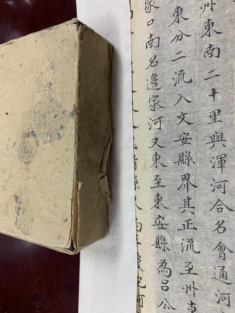 州東南二十里與渾河合名會通河
東分二流入文安縣界其正流至州
家口南名邊家河又東至東安縣為呂公